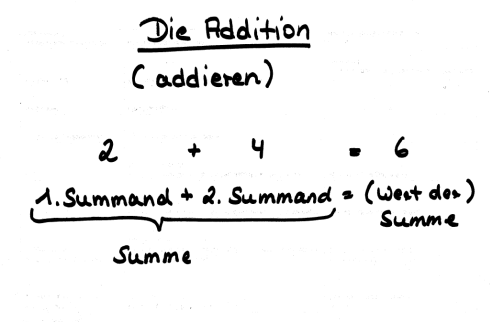 Die Addition
(addieren)
2 + 4 = 6
1. Summand + 2. Summand = (Wert der)
Summe
Summe